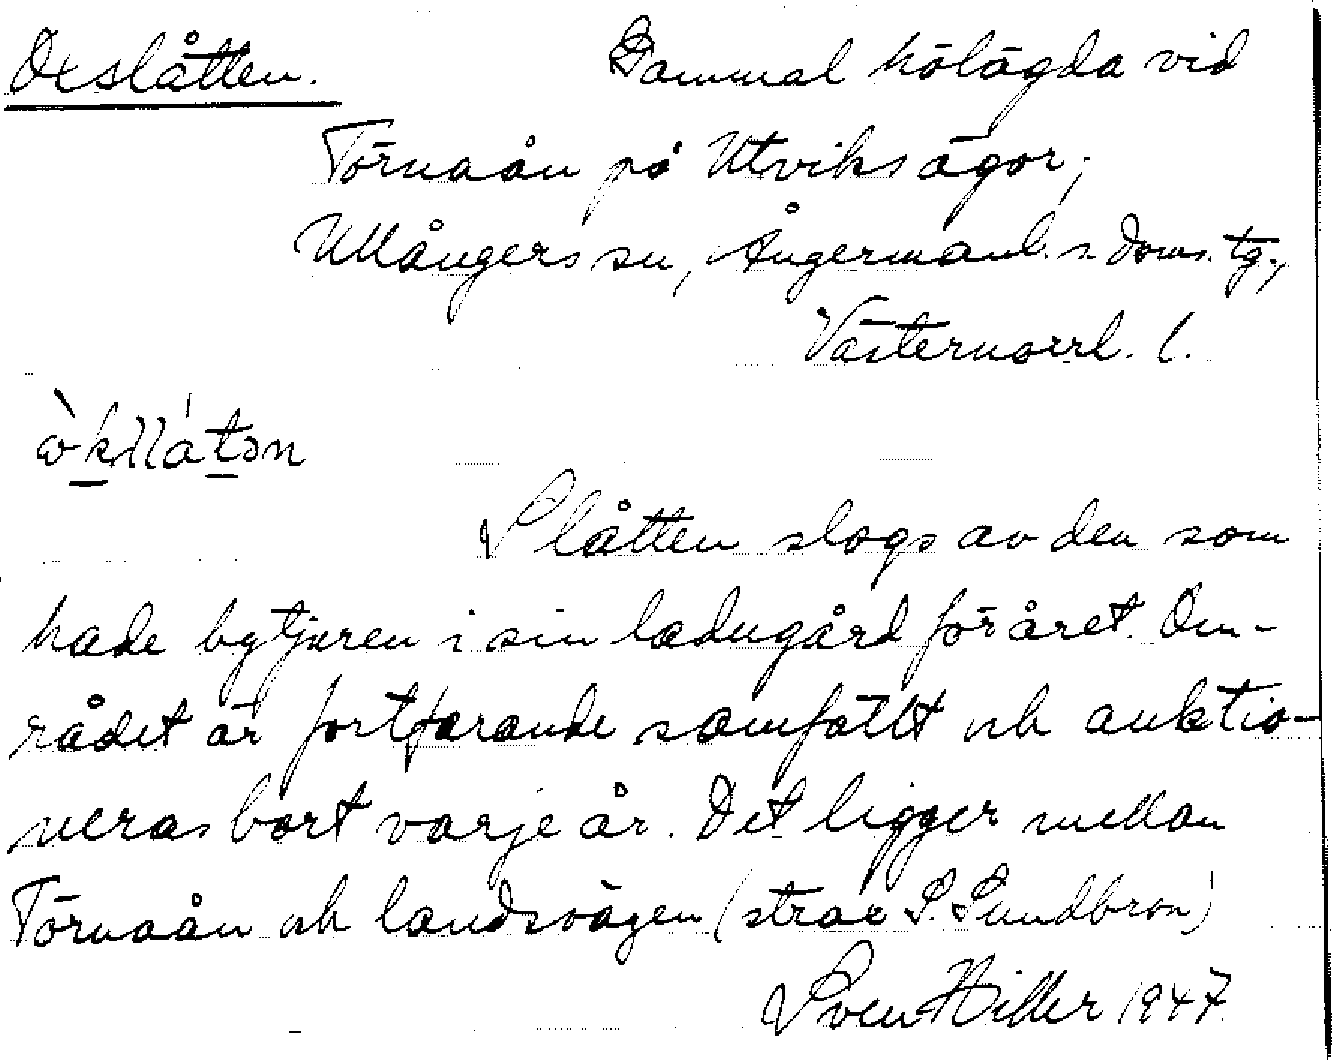 Oxslåtten. Gammal hölägda vid
Törnaån på Utviks ägor,
Ullångers sn, Ångermanl. s. doms. tg.,
Västernorrl. l.
Slåtten slogs av den som
hade bytjuren i sin ladugård för året. Om-
rådet är fortfarande samfällt och auktio-
neras bort varje år. Det ligger mellan
Törnaån och landsvägen (strax S. Sundbron)
Sven Hiller 1947